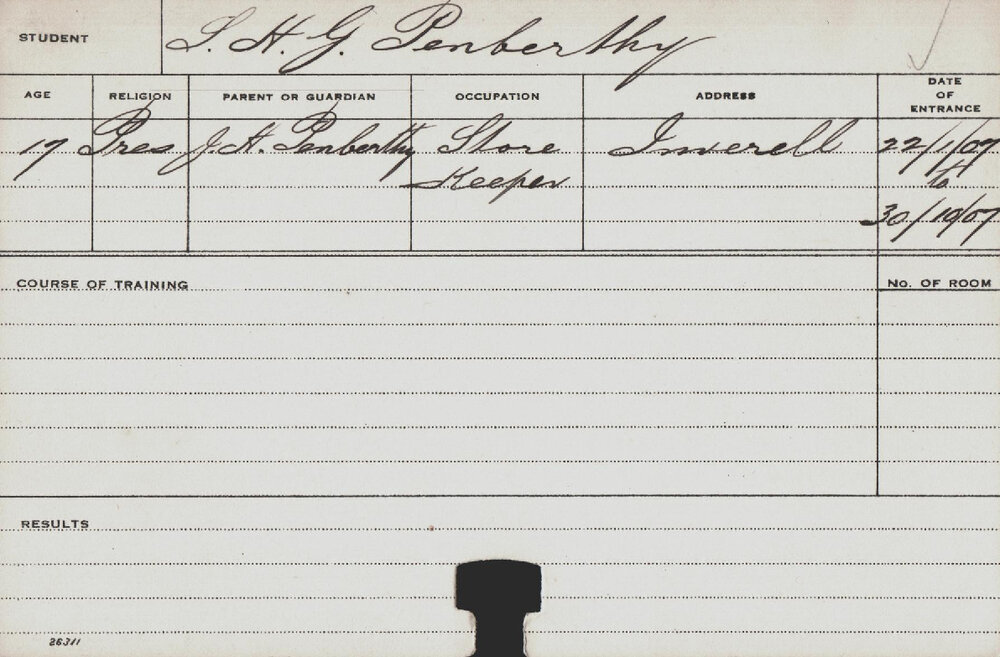 STUDENT L. H. G. Penberthy
AGE RELIGION PARENT OR GUARDIAN OCCUPATION ADDRESS DATE OF ENTRANCE
17 Pres J. H. Penberthy Store Inverell 22/1/07
Keeper to
30/10/07
COURSE OF TRAINING No. OF ROOM
RESULTS
26311